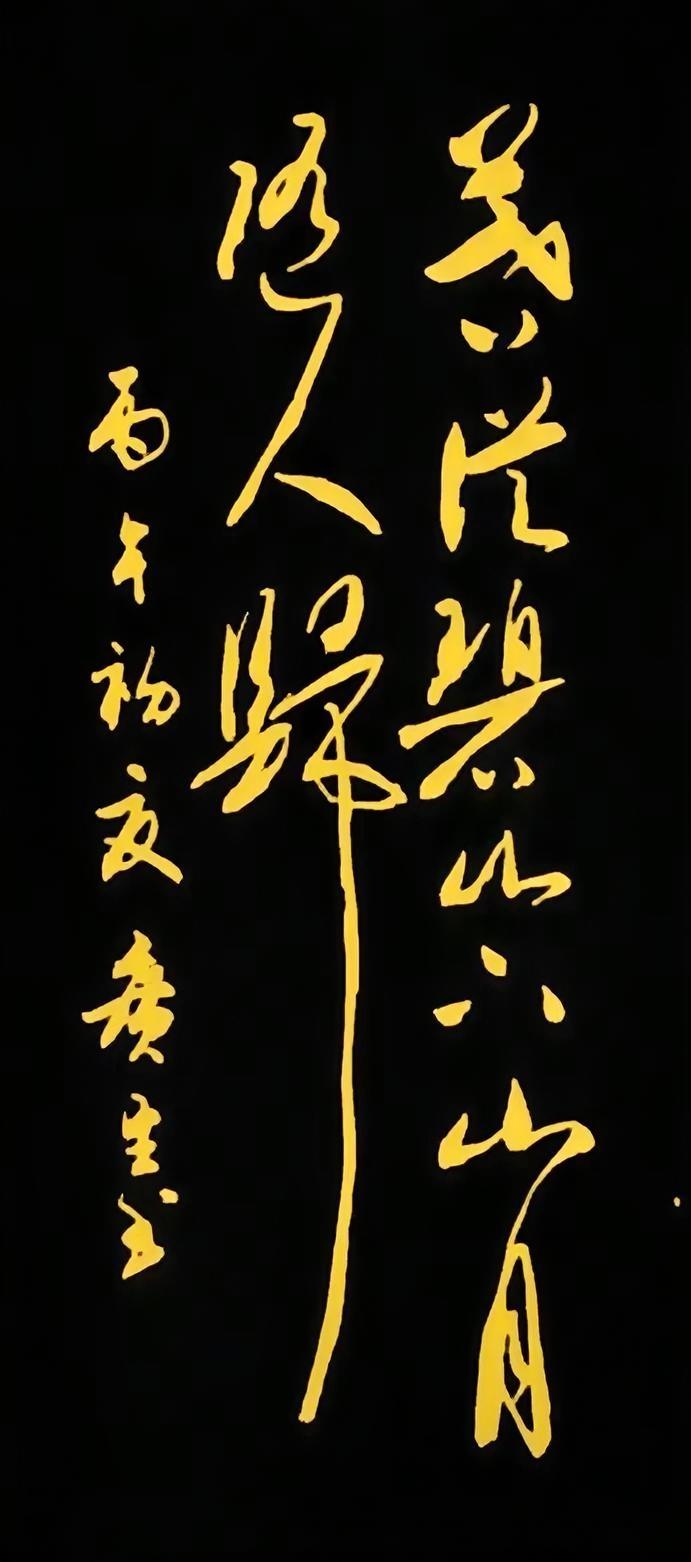 暮從碧山下山月
隨人歸
丙午初夏廣生書